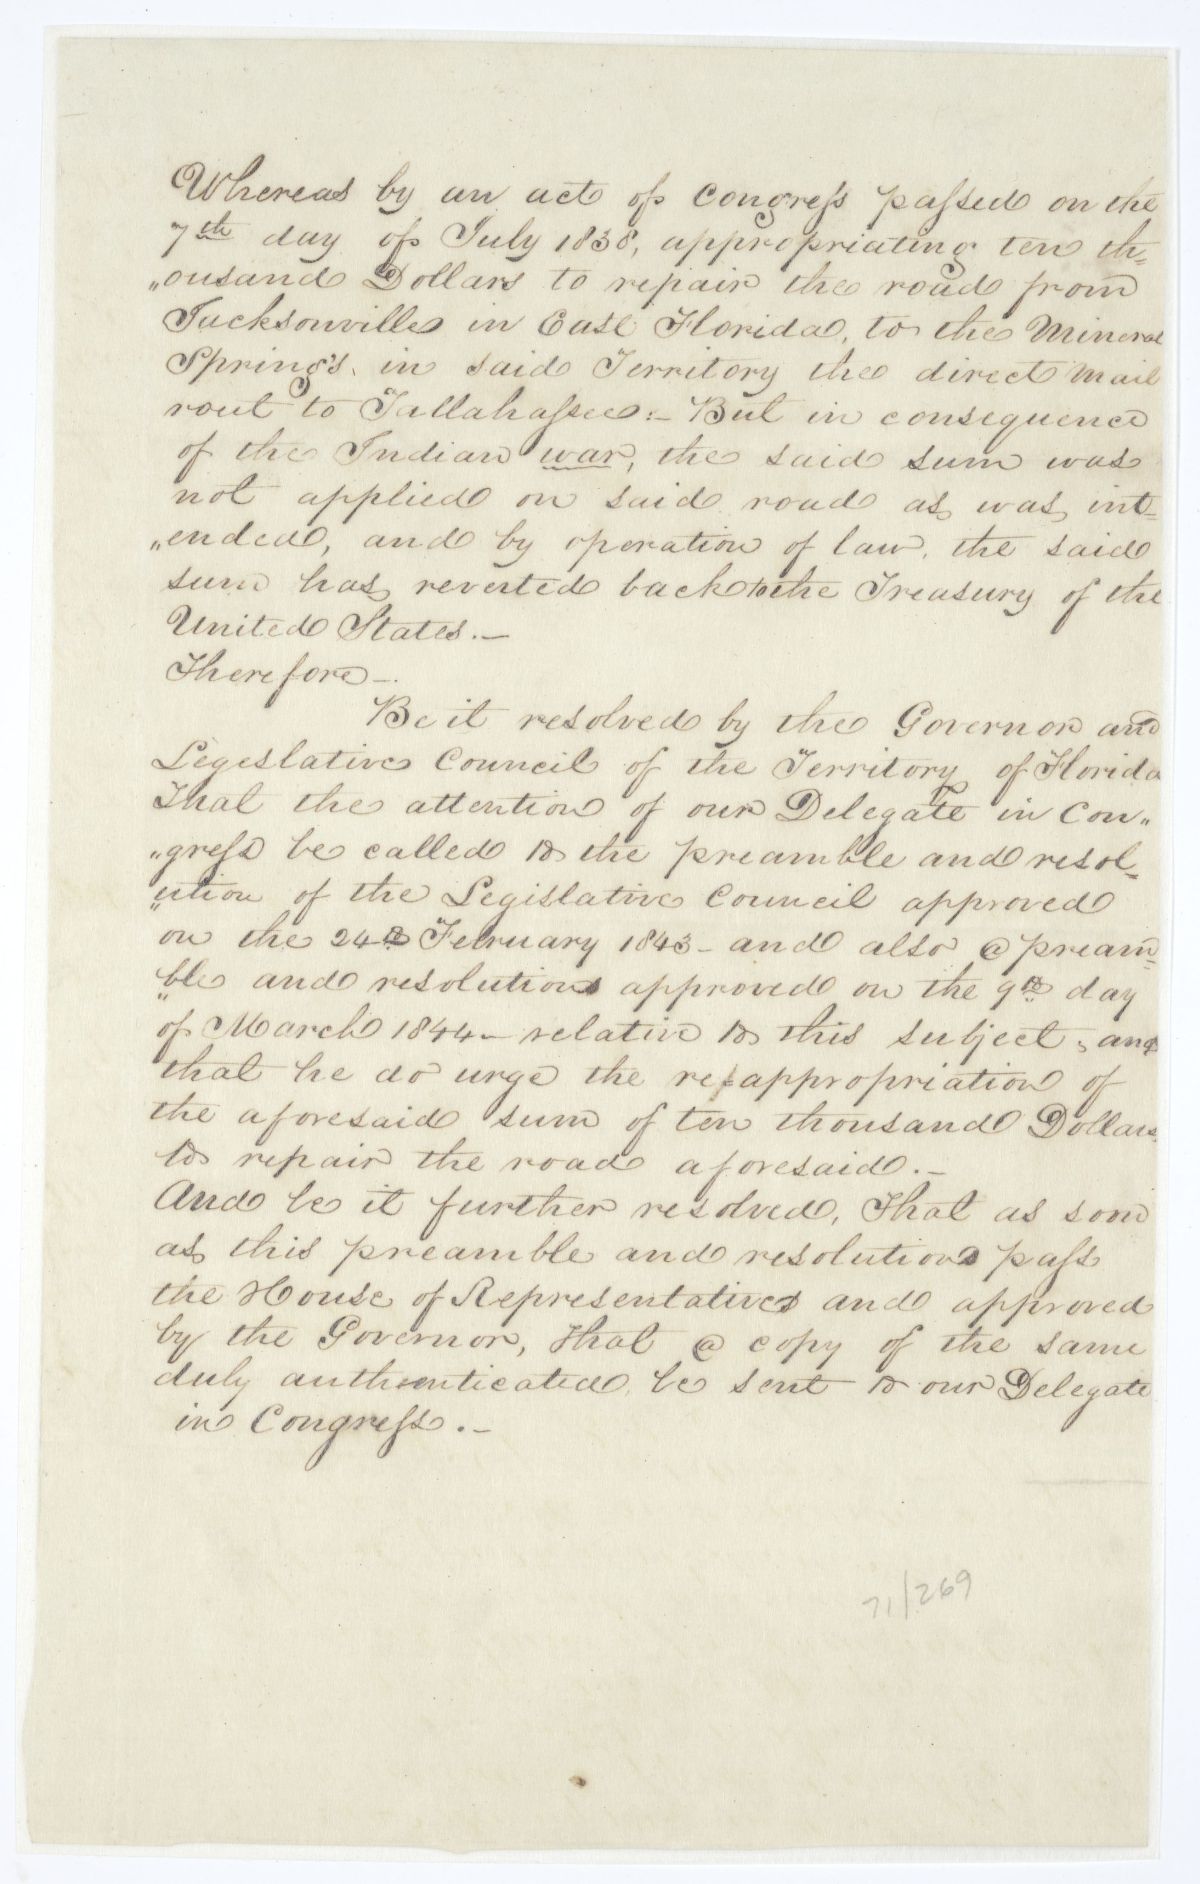 Whereas by an act of Congress passed on the
7th day of July 1838, appropriating ten th=
„ousand Dollars to repair the road from
Jacksonville in East Florida, to the Mineral
Spring's, in said Territory the direct mail
rout to Tallahassee:- But in consequence
of the Indian war, the said sum was
not applied on said road as was int=
„ended, and by operation of law, the said
sum has reverted back to the Treasury of the
United States.—
Therefore—.
Be it resolved by the Governor and
Legeslative Council of the Territory of Florida
That the attention of our Delegate in Con„
„gress be called to the preamble and resol=
„ution of the Legislative Council approved
on the 24th February 1843- and also a pream=
„ble and resolutions approved on the 9th day
of March 1844- relative to this subject, and
that he do urge the reappropriation of
the aforesaid sum of ten thousand Dollars
to repair the road aforesaid.—
And be it further resolved, That as soon
as this preamble and resolutions pass
the House of Representatives and approved
by the Governor, that a copy of the same
duly authenticated, be sent to our Delegate
in Congress.—
71/269